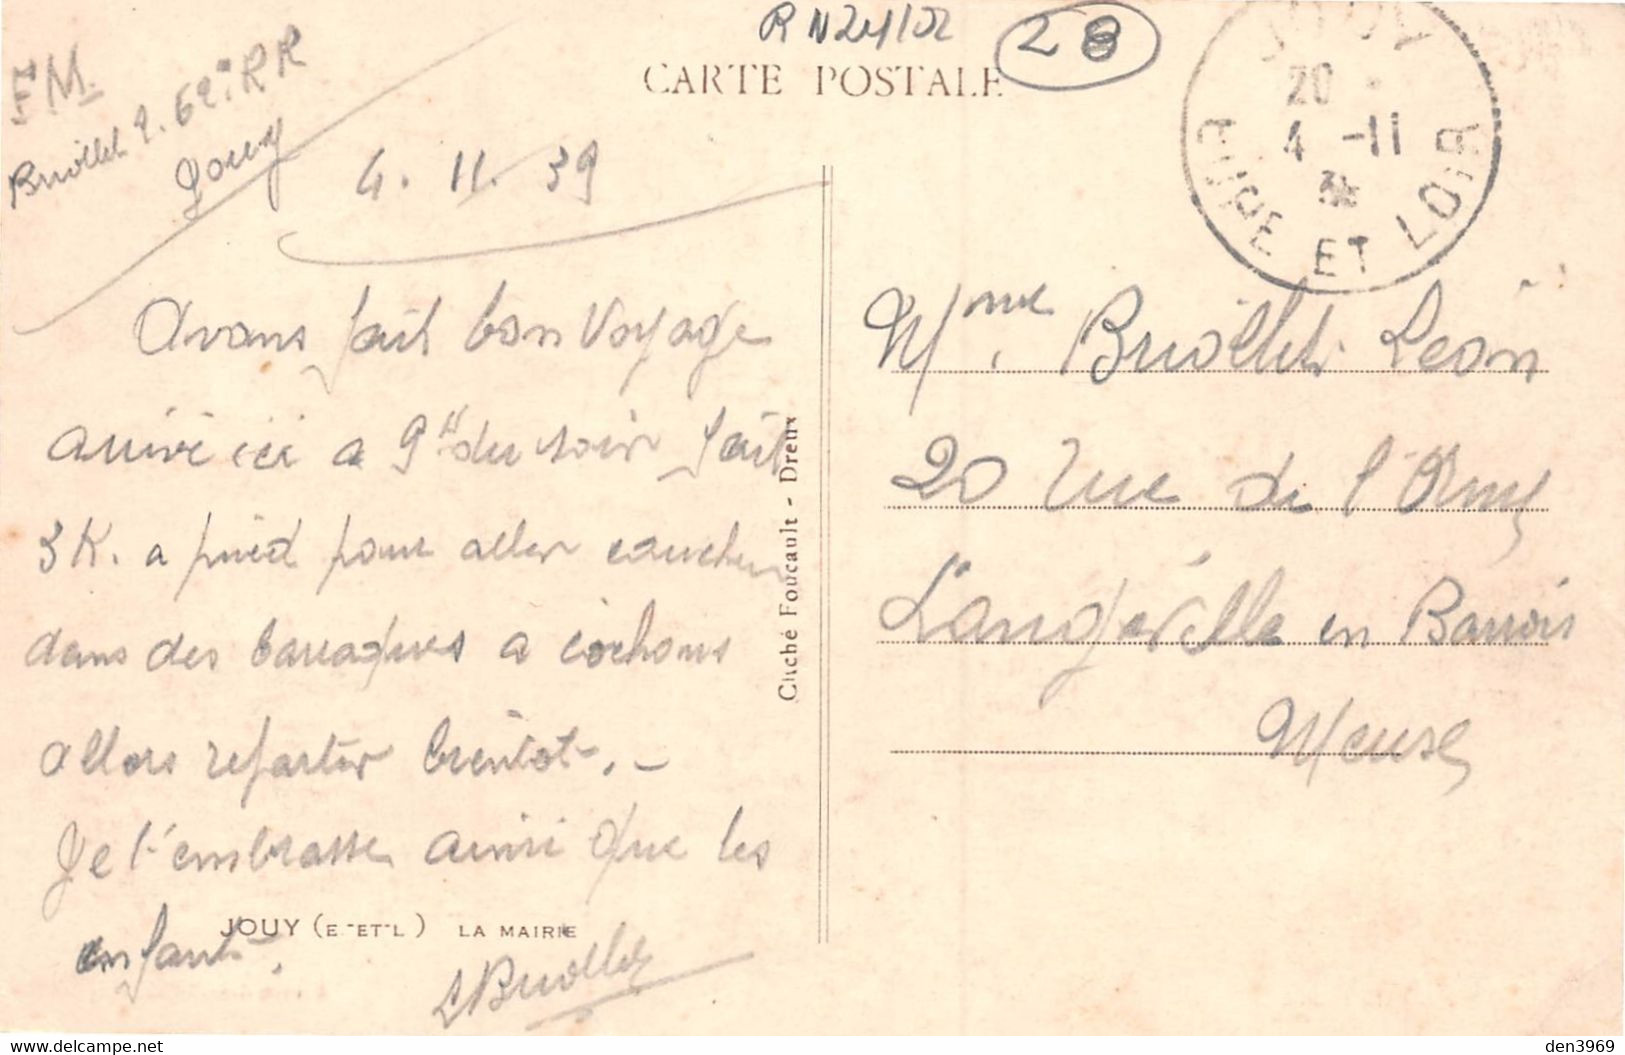 RN24102
28
CARTE POSTALE
FM.
Jouy
4. 11. 39
JOUY
20
4 -11
EURE ET LOIR
Avons fait bon voyage
arrivé ici a 9h du soir fait
3K. a pied pour aller coucher
dans des baraques a cochons
allons repartir bientot. -
Je t'embrasse ainsi que les
enfants.
JOUY (E.-ET-L) LA MAIRIE
Cliché Foucault - Dreux
Mme Briollet Léon
20 rue de l'Orme
Longeville en Barrois
Meuse
L Briollet
den3969